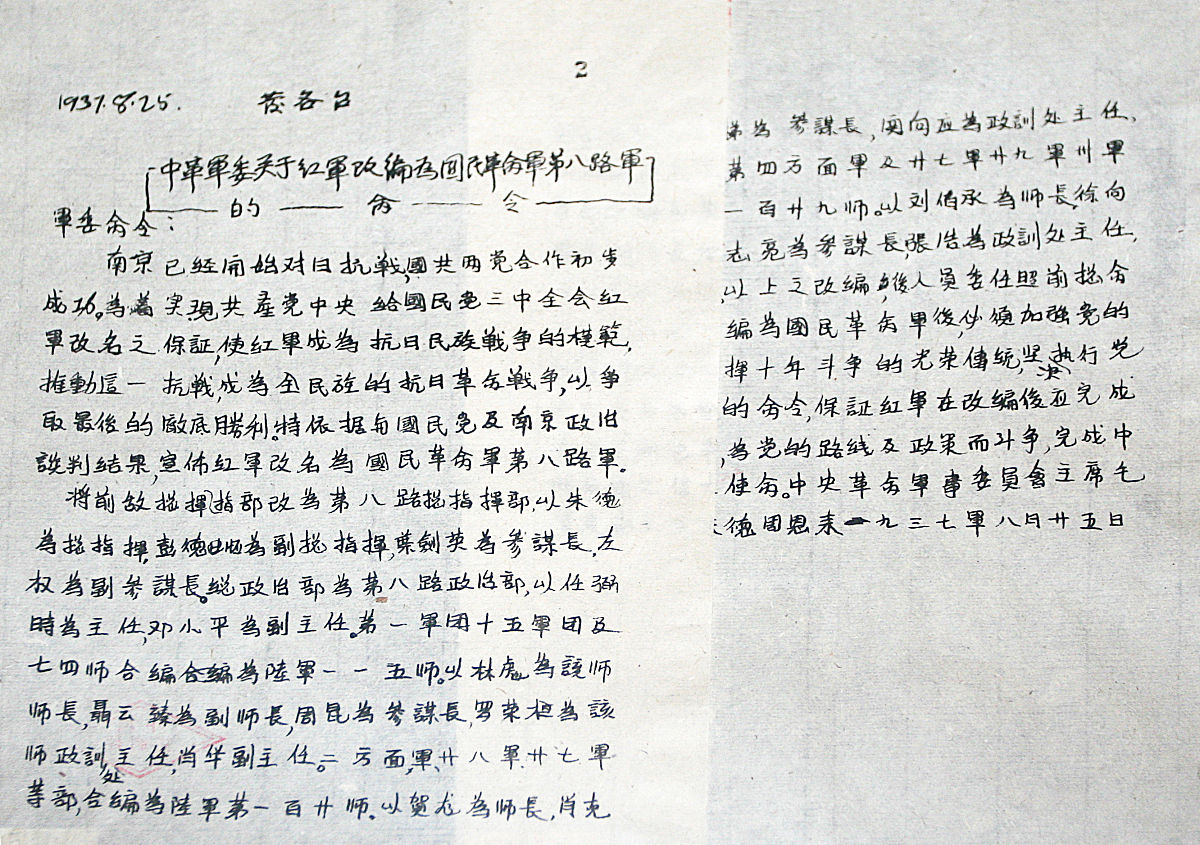 2
1937.8.25. 发各台
中革軍委关于红軍改编為囯民革命軍第八路軍
的 命 令
軍委命令：
南京已经開始对日抗戰,國共两党合作初步
成功。為着实現共産党中央給國民党三中全会红
軍改名之保証,使红軍成為抗日民族戰争的模範,
推動這一抗戰,成為全民族的抗日革命戰争,以争
取最後的徹底勝利。特依据与國民党及南京政治
談判结果,宣佈红軍改名為國民革命軍第八路軍。
将前敌揔指揮部改為第八路揔指揮部,以朱德
為揔指揮,彭德怀為副揔指揮,葉劍英為参謀長,左
权為副参謀長。總政治部為第八路政治部,以任弼
時為主任,邓小平為副主任。第一軍团十五軍团及
七四师合编為陸軍一一五师。以林彪為該师
师長,聶云臻為副师長,周昆為参謀長,罗荣桓為該
师政訓处主任,肖华副主任。二方面,軍廿八軍廿七軍
等部,合编為陸軍第一百廿师。以贺龙為师長,肖克
第為参謀長,関向应為政訓处主任、
第四方面軍及廿七軍廿九軍卅軍
一百廿九师。以刘伯承為师長,徐向
志亮為参謀長,張浩為政訓处主任,
以上之改编後,人員委任照前揔命
编為國民革命軍後,必須加強党的
揮十年斗争的光荣傳统,坚决执行党
的命令,保証红軍在改编後应完成
,為党的路线及政策而斗争,完成中
使命。中央革命軍事委員會主席毛
德周恩来一九三七軍八月廿五日